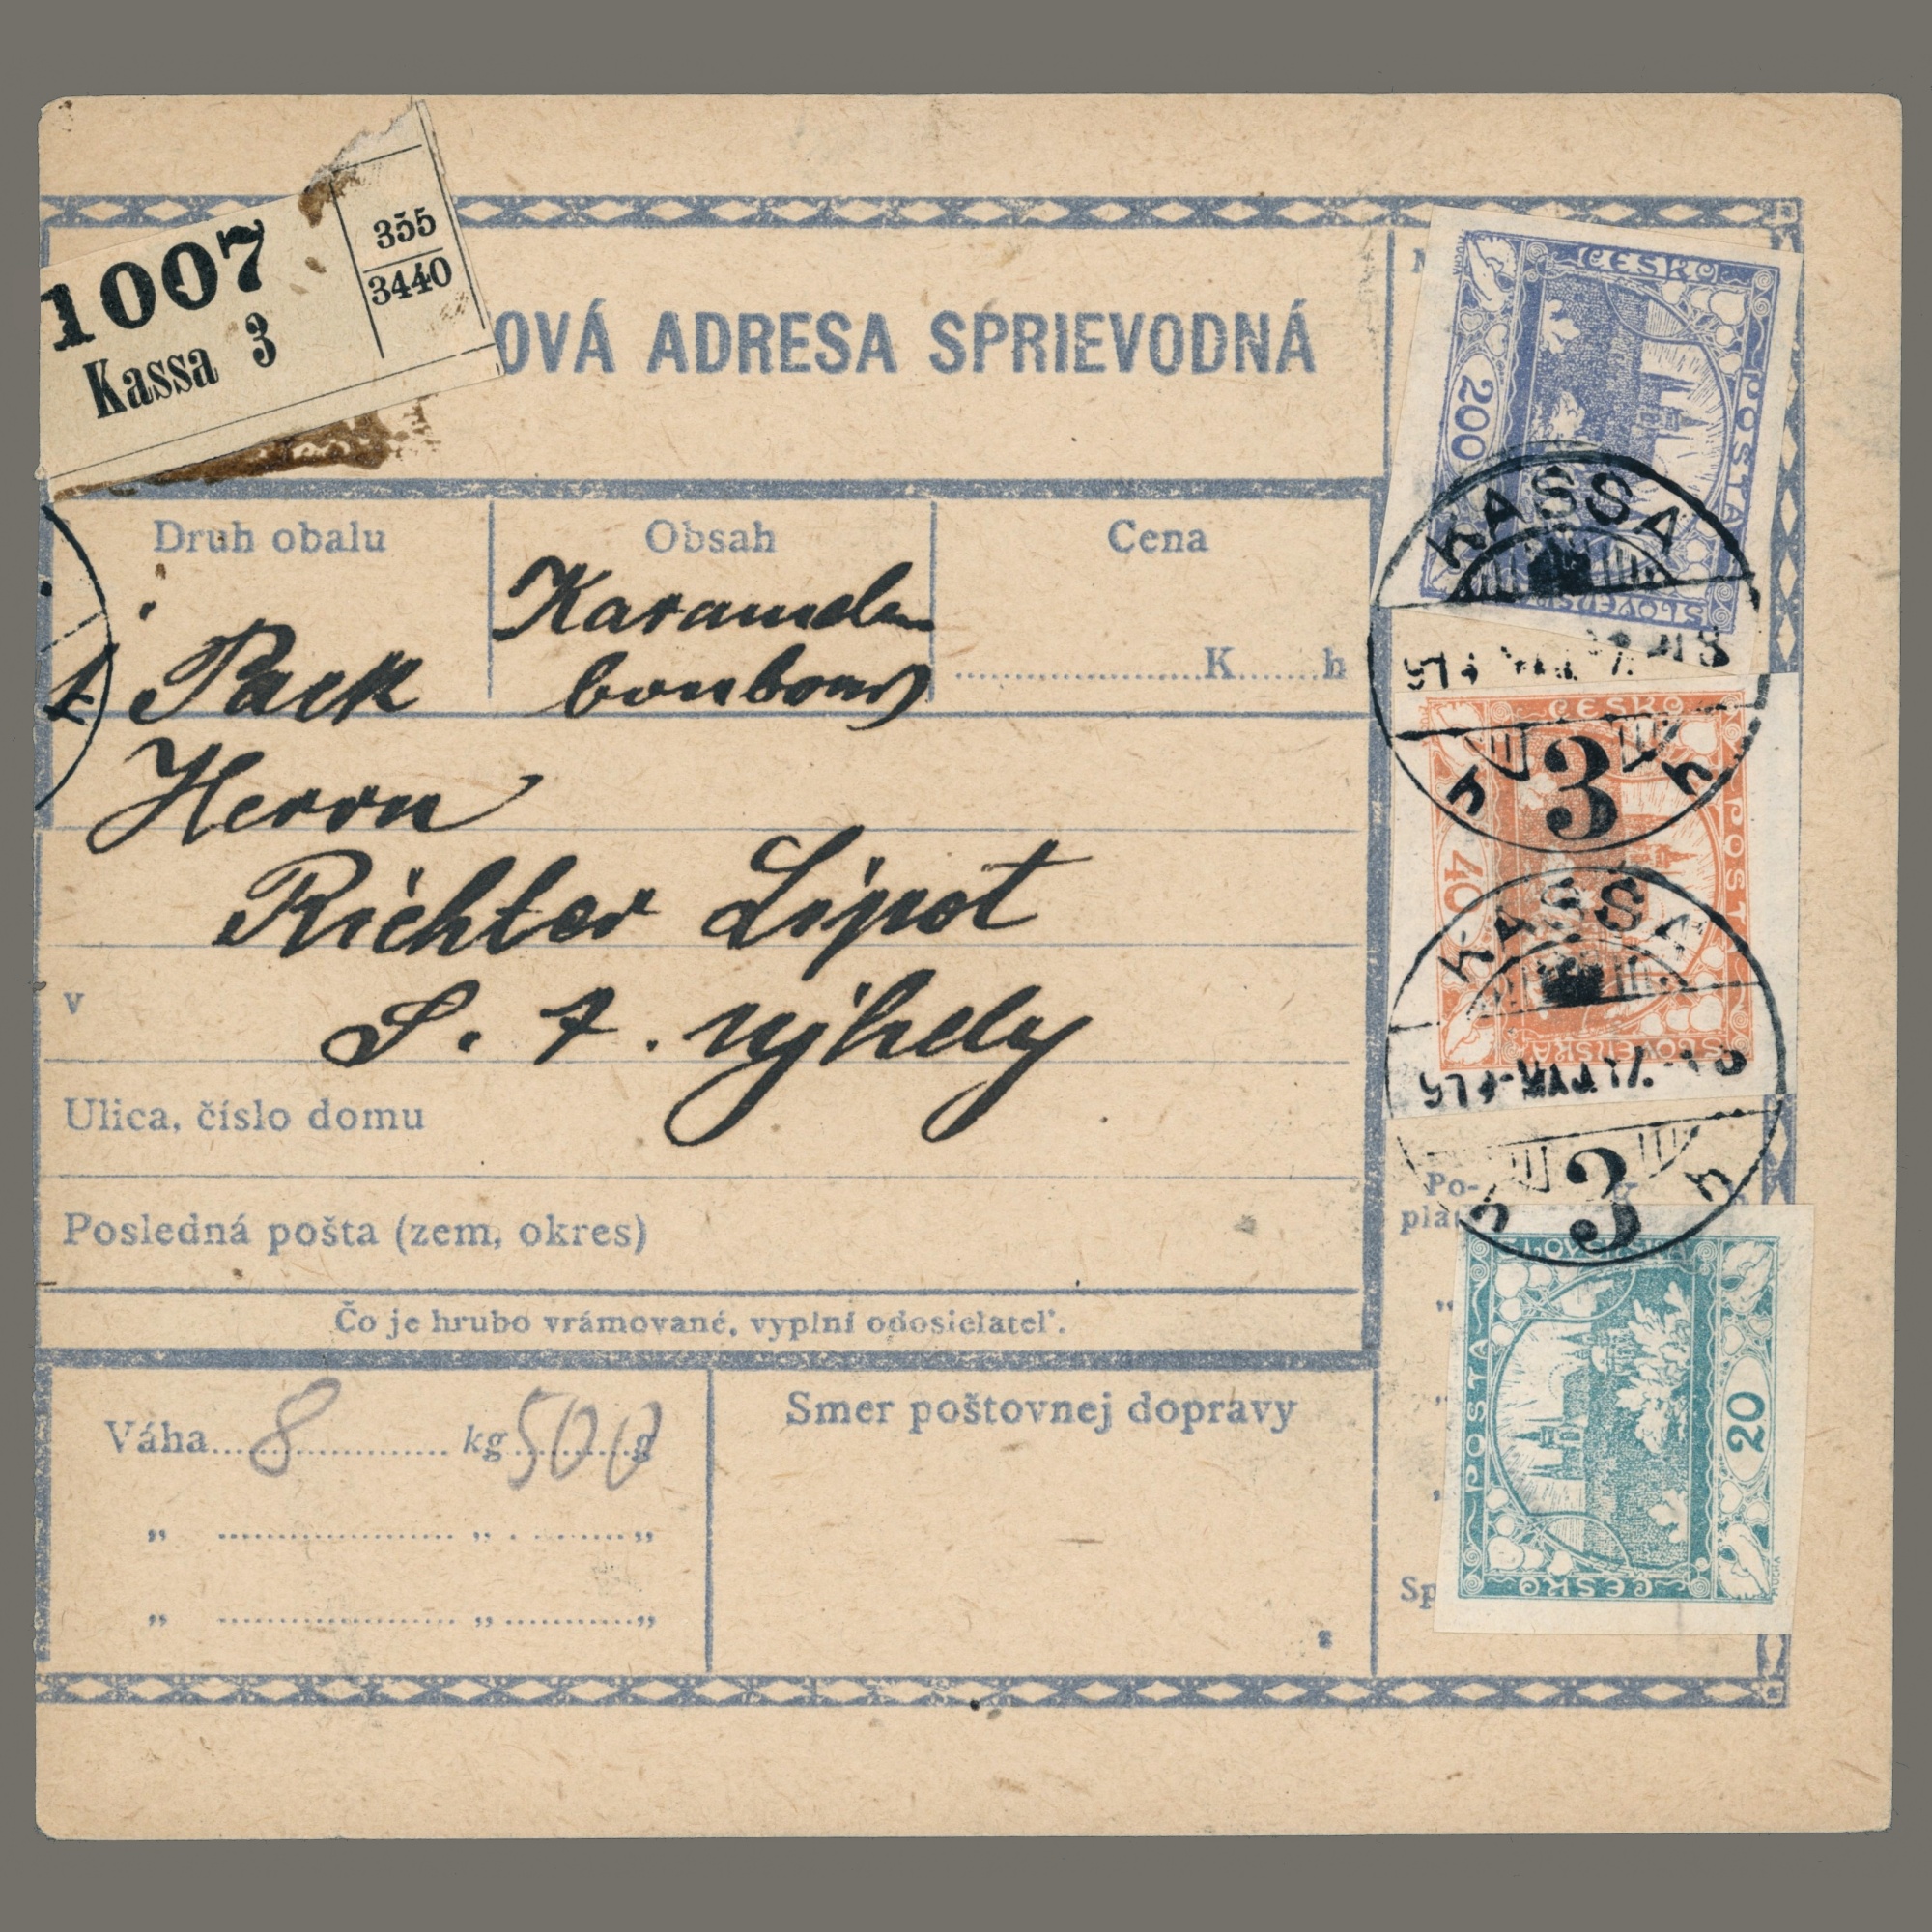 1007
Kassa 3
355
3440
OVÁ ADRESA SPRIEVODNÁ
Druh obalu
Obsah
Cena
1 Pack
Karamelen
bonbons
K h
Herrn
Richter Lipot
v
S. A. Ujhely
Ulica, číslo domu
Posledná pošta (zem, okres)
Čo je hrubo vrámované, vyplní odosielateľ.
Váha 8 kg 500 g
„ „ „
„ „ „
Smer poštovnej dopravy
ČESKO
POŠTA
SLOVENSKÁ
200
KASSA
3
h h
ČESKO
POŠTA
SLOVENSKÁ
40
KASSA
3
h h
Po-
SLOVENSKÁ
POŠTA
ČESKO
20
MUCHA
Sp